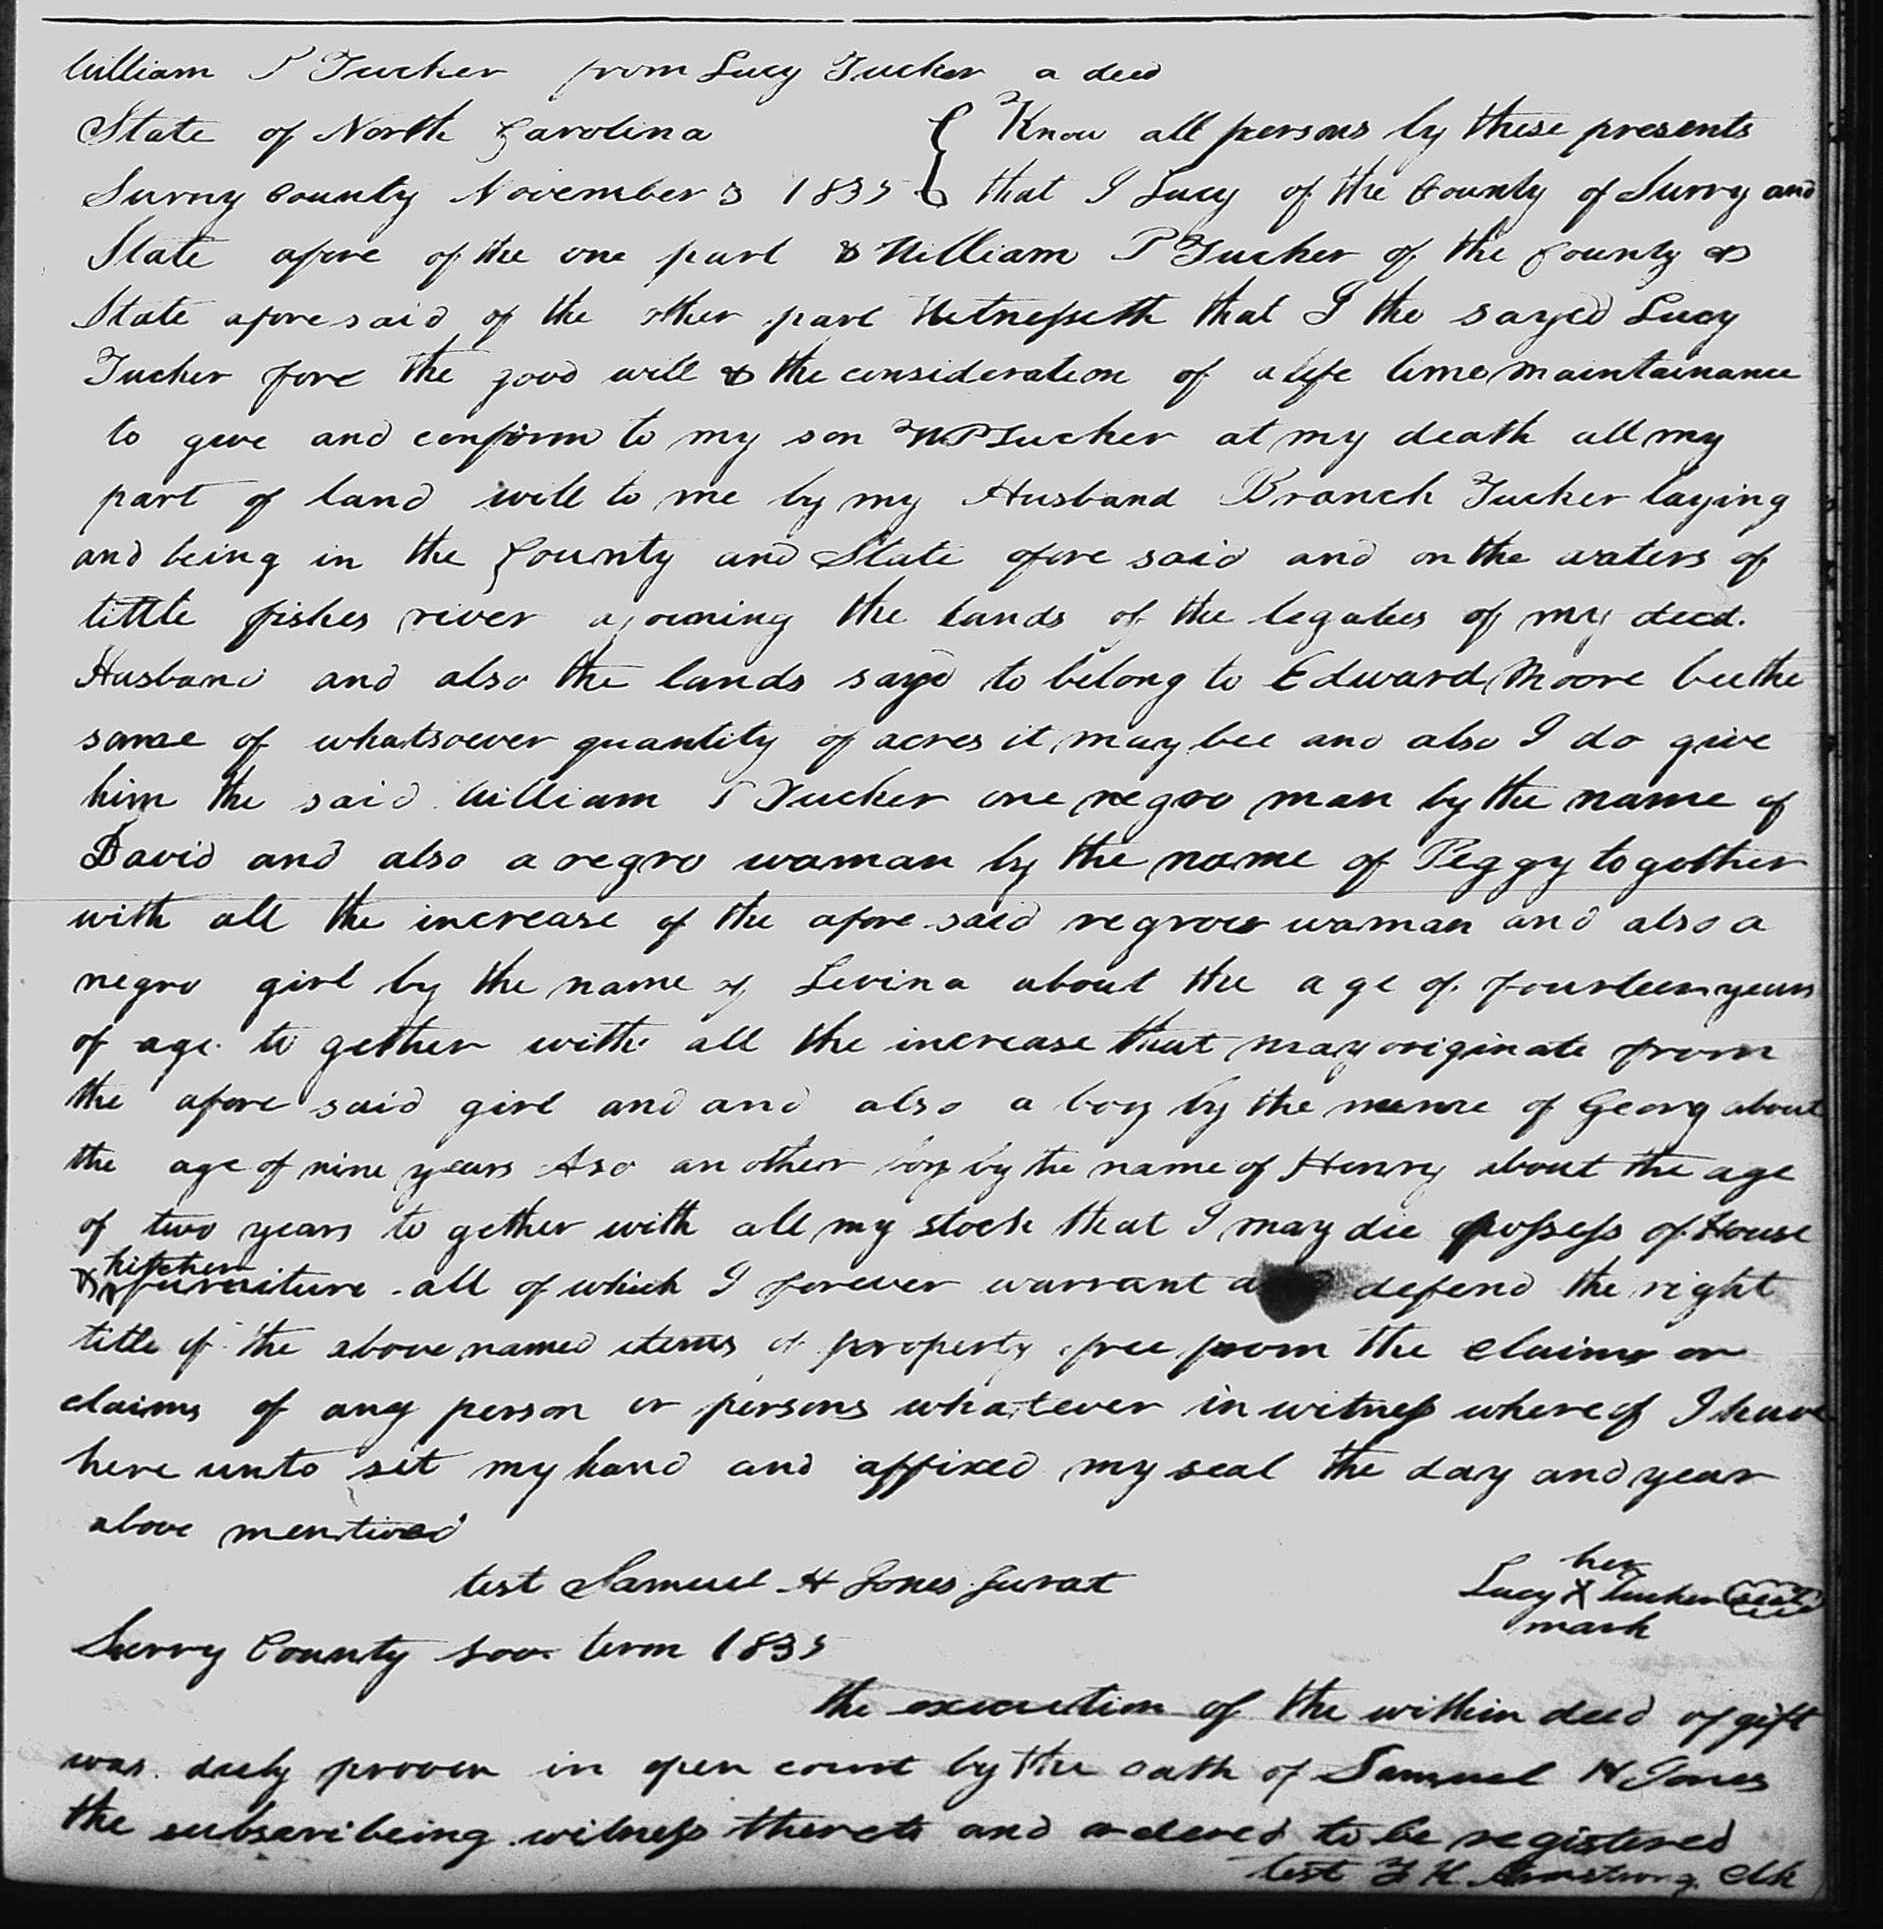 William P Tucker from Lucy Tucker a deed
State of North Carolina { Know all persons by these presents
Surry County November 3 1835 { that I Lucy of the County of Surry and
State afore of the one part & William P Tucker of the County &
State aforesaid of the other part Witnesseth that I the sayed Lucy
Tucker fore the good will & the consideration of a life time maintainance
to geve and confirm to my son W.P Tucker at my death all my
part of land will to me by my Husband Branch Tucker laying
and being in the County and State afore said and on the waters of
little fishes river ajoining the lands of the legatees of my decd.
Husband and also the lands sayd to belong to Edward Moore bee the
same of whatsoever quantity of acres it may bee and also I do give
him the said William P Tucker one negro man by the name of
David and also a negro woman by the name of Peggy to gether
with all the increase of the afore said negrow woman and also a
negro girl by the name of Levina about the age of fourteen years
of age to gether with all the increase that may originate from
the afore said girl and and also a boy by the name of Georg about
the age of nine years Also an other boy by the name of Henry about the age
of two years to gether with all my stock that I may die possess of House
& kitchen furniture all of which I forever warrant and defend the right
title of the above named items of property free from the claims or
claims of any person or persons whatever in witness where of I have
here unto set my hand and affixed my seal the day and year
above mentined
her
test Samuel H Jones Jurat Lucy X Tucker (seal)
mark
Surry County Nov. term 1835
the execution of the within deed of gift
was duly proven in open court by the oath of Samuel H Jones
the subscribeing witness thereto and ordered to be registered
test F K Armstrong Clk